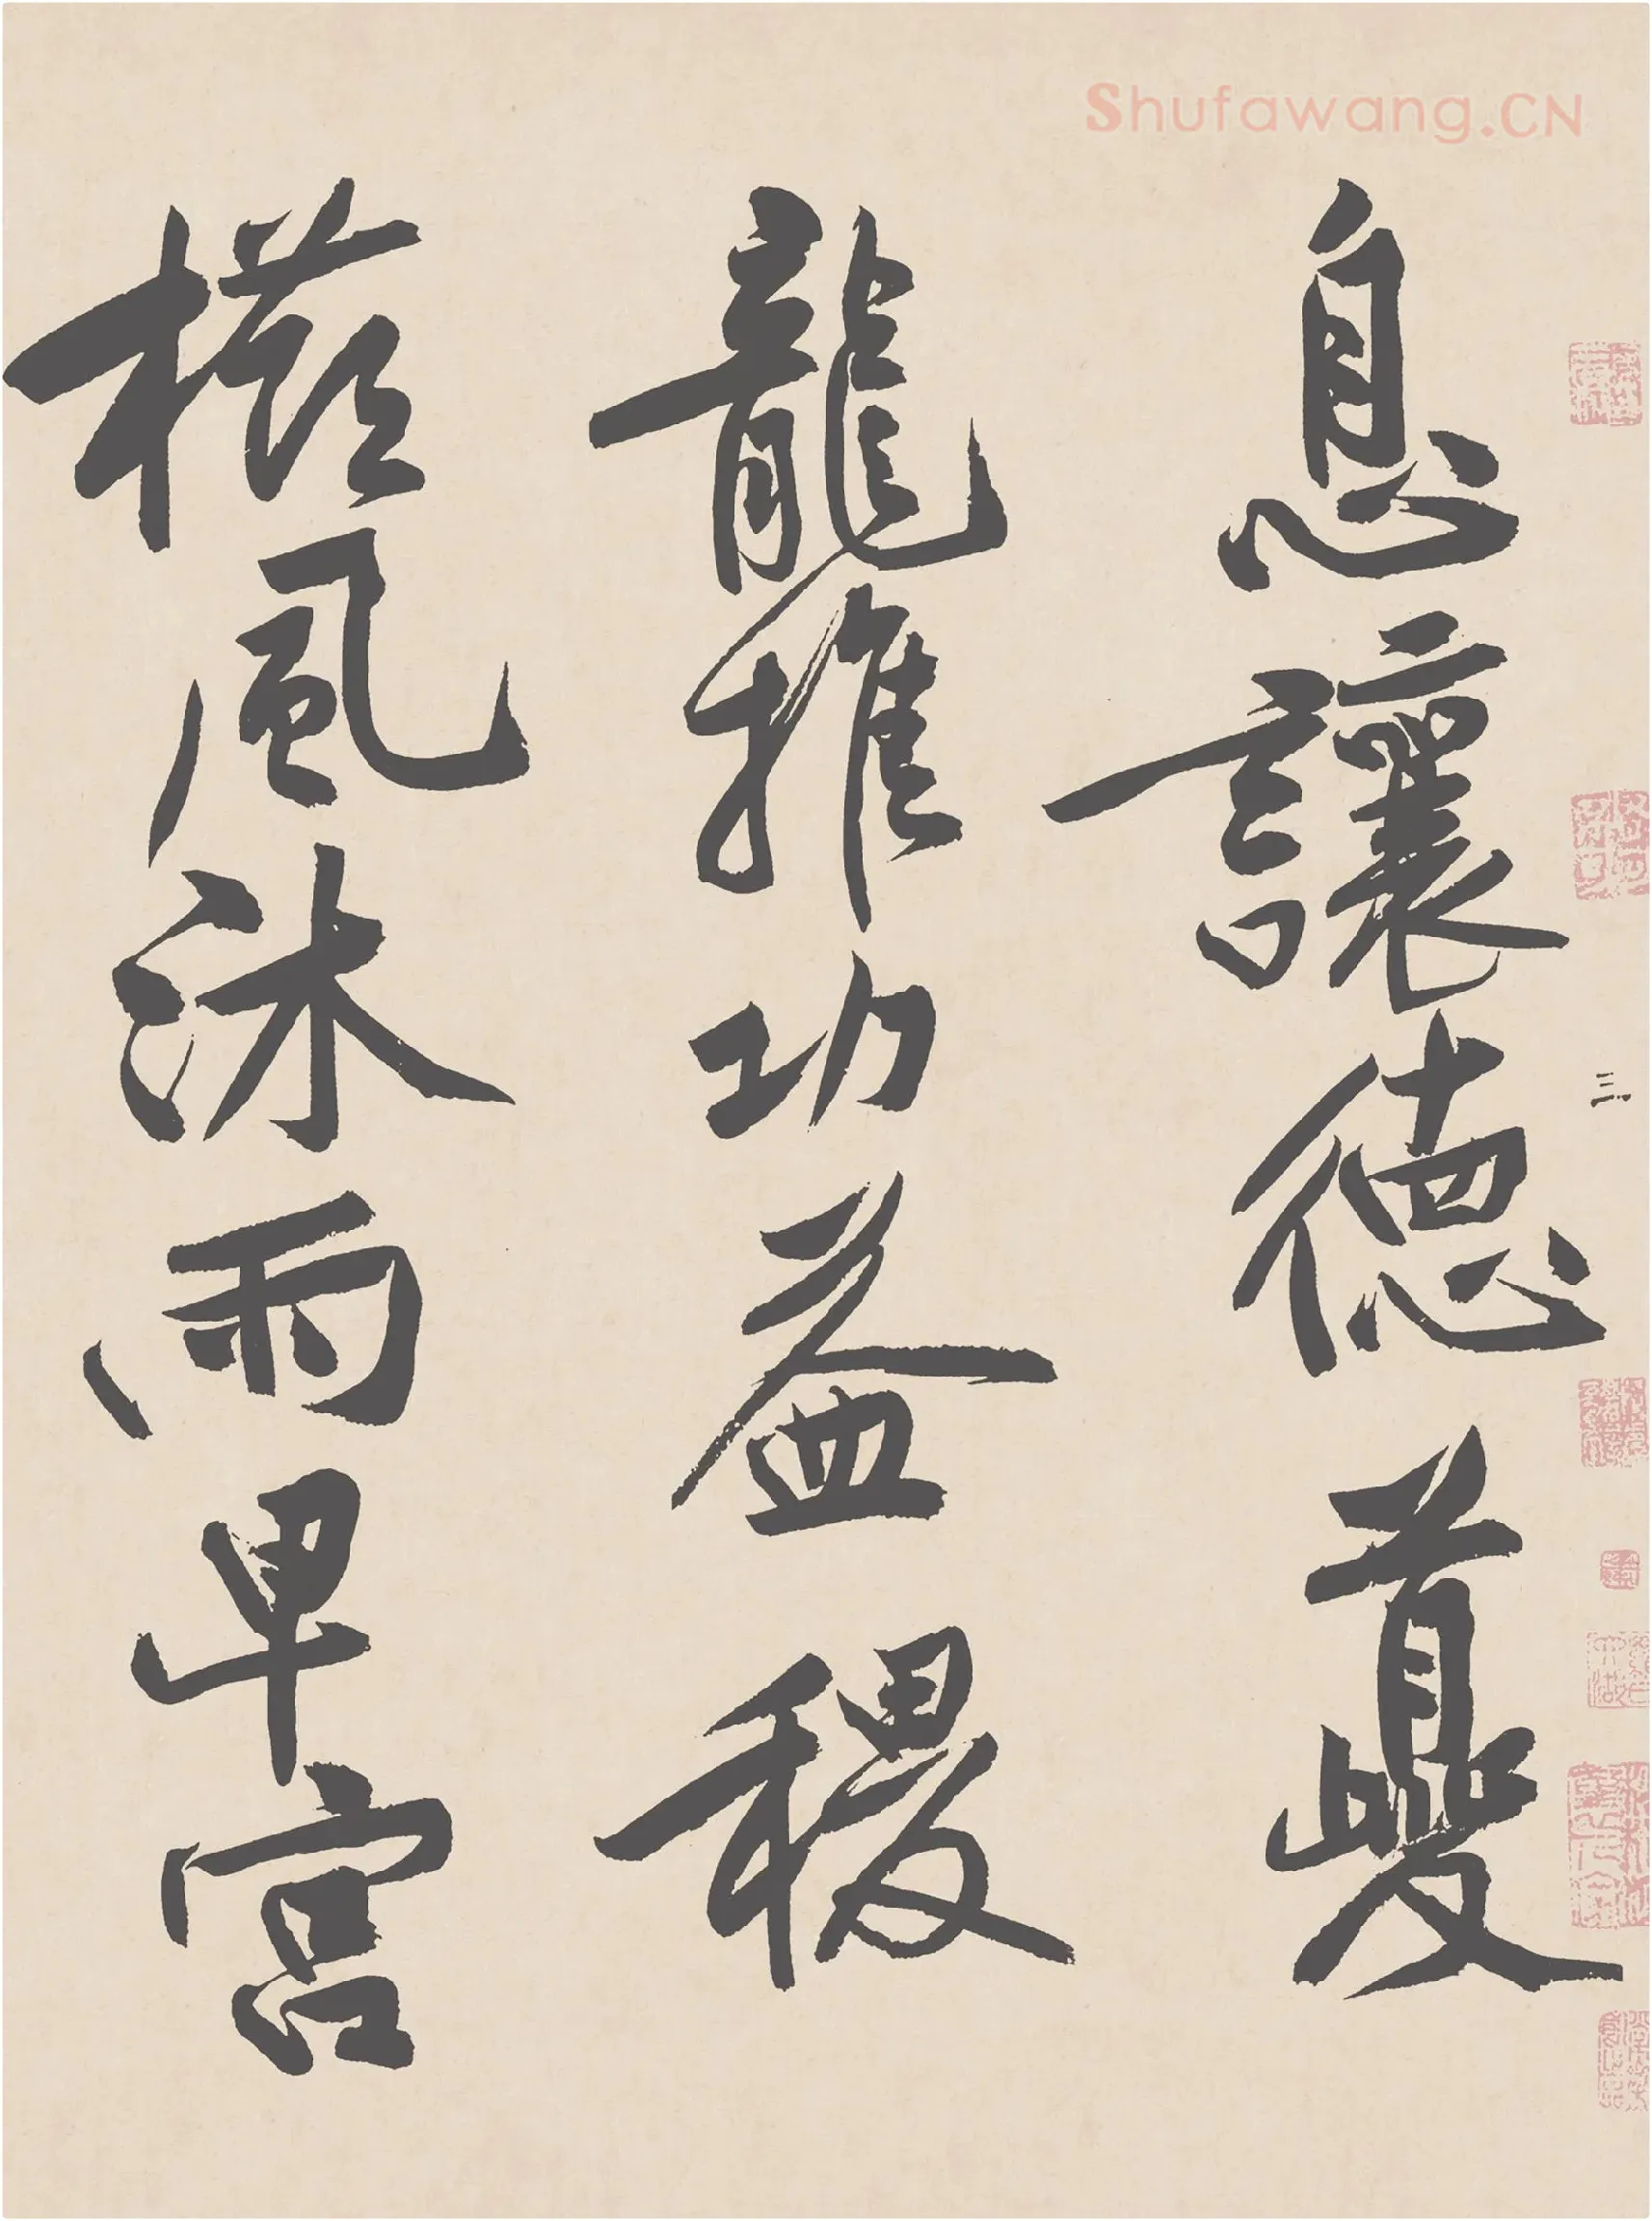 Shufawang.CN
息讓德夔
龍推功益稷
櫛風沐雨卑宫
三